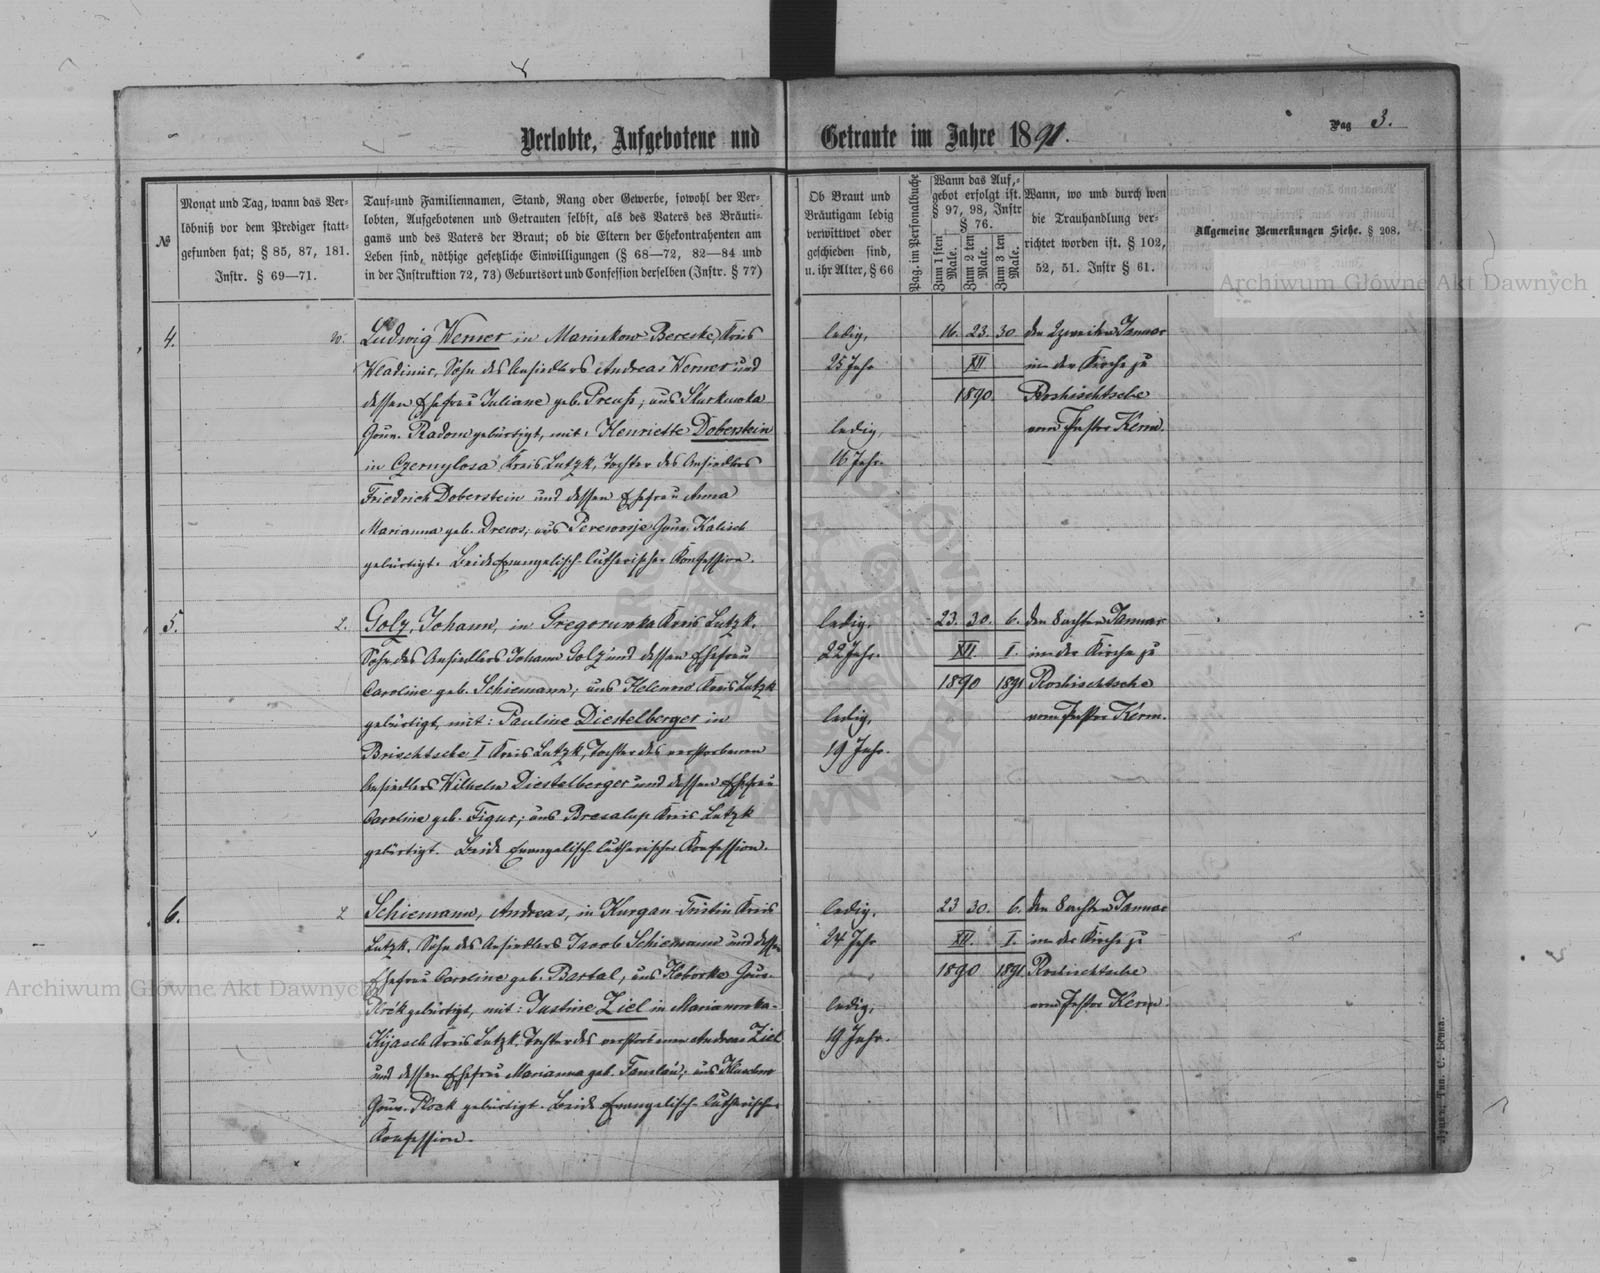 Verlobte, Aufgebotene und Getraute im Jahre 1891.
Pag 3.
№
Monat und Tag, wann das Ver-
löbniß vor dem Prediger statt-
gefunden hat; § 85, 87, 181.
Instr. § 69—71.
Tauf-und Familiennamen, Stand, Rang oder Gewerbe, sowohl der Ver-
lobten, Aufgebotenen und Getrauten selbst, als des Vaters des Bräuti-
gams und des Vaters der Braut; ob die Eltern der Ehekontrahenten am
Leben sind, nöthige gesetzliche Einwilligungen (§ 68—72, 82—84 und
in der Instruktion 72, 73) Geburtsort und Confession derselben (Instr. § 77)
Ob Braut und
Bräutigam ledig
verwittwet oder
geschieden sind,
u. ihr Alter, § 66
Pag. im Personalbuche
Wann das Auf-
gebot erfolgt ist.
§ 97, 98, Instr
§ 76.
Zum 1 sten Male.
Zum 2 ten Male.
Zum 3 ten Male.
Wann, wo und durch wen
die Trauhandlung ver-
richtet worden ist. § 102,
52, 51. Instr § 61.
Allgemeine Bemerkungen Siehe. § 208.
Archiwum Główne Akt Dawnych
4.
W.
Ludwig Werner in Marinkow Bereske, Kreis
Wladimir, Sohn des Ansiedlers Andreas Werner und
dessen Ehefrau Juliane geb. Preuß, aus
Gouv. Radom gebürtigt, mit: Henriette Doberstein
in Czernylosa Kreis Lutzk, Tochter des Ansiedlers
Friedrich Doberstein und dessen Ehefrau Anna
Marianna geb. Drews, aus Gouv. Kalisch
gebürtigt. Beide Evangelisch-lutherischer Konfession.
ledig,
25 Jahr
ledig,
16 Jahr.
16. 23. 30
XII
1890.
den Zweiten Januar
in der Kirche zu
Roshischtsche
vom Pastor Kerm.
5.
L.
Golz, Johann, in Gregorumka Kreis Lutzk,
Sohn des Ansiedlers Johann Golz und dessen Ehefrau
Caroline geb. Schiemann, aus Helenow Kreis Lutzk
gebürtigt, mit: Pauline Diestelberger in
Brischtsche I Kreis Lutzk, Tochter des verstorbenen
Ansiedlers Wilhelm Diestelberger und dessen Ehefrau
Caroline geb. Figur, aus Kreis Lutzk
gebürtigt. Beide Evangelisch-lutherischer Konfession.
ledig,
22 Jahr.
ledig,
19 Jahr.
23. 30. 6.
XII. I.
1890 1891
den Sechsten Januar
in der Kirche zu
Roshischtsche
vom Pastor Kerm.
6.
L
Schiemann, Andreas, in Kurgan-Tristin Kreis
Lutzk, Sohn des Ansiedlers Jacob Schiemann und dessen
Ehefrau Caroline geb. Bartal, aus Koborke Gouv.
Plock gebürtigt, mit: Justine Ziel in Marianowka-
Kijasch Kreis Lutzk, Tochter des verstorbenen Andreas Ziel
und dessen Ehefrau Marianna geb. Tanslau, aus
Gouv. Plock gebürtigt. Beide Evangelisch-Lutherischer
Konfession.
ledig,
24 Jahr
ledig,
19 Jahr.
23 30. 6.
XII. I.
1890 1891
den Sechsten Januar
in der Kirche zu
Roshischtsche
vom Pastor Kerm.
Archiwum Główne Akt Dawnych